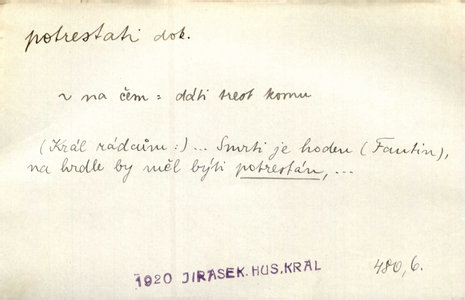 potrestati dok.
~ na čem = dáti trest komu
(Král rádcům:) ... Smrti je hoden (Fantin),
na hrdle by měl býti potrestán, ...
1920 JIRASEK.HUS.KRAL
480,6.